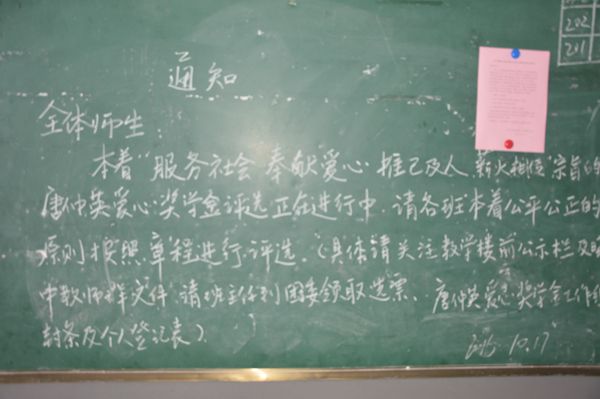 通知
202
201
全体师生:
本着"服务社会 奉献爱心 推己及人 薪火相传"宗旨的
唐仲英爱心奖学金评选正在进行中. 请各班本着公平公正的
原则按照章程进行评选.(具体请关注教学楼前公示栏及
中教师群文件 请班主任到团委领取选票、唐仲英爱心奖学金工作
封条及个人登记表)
10.17